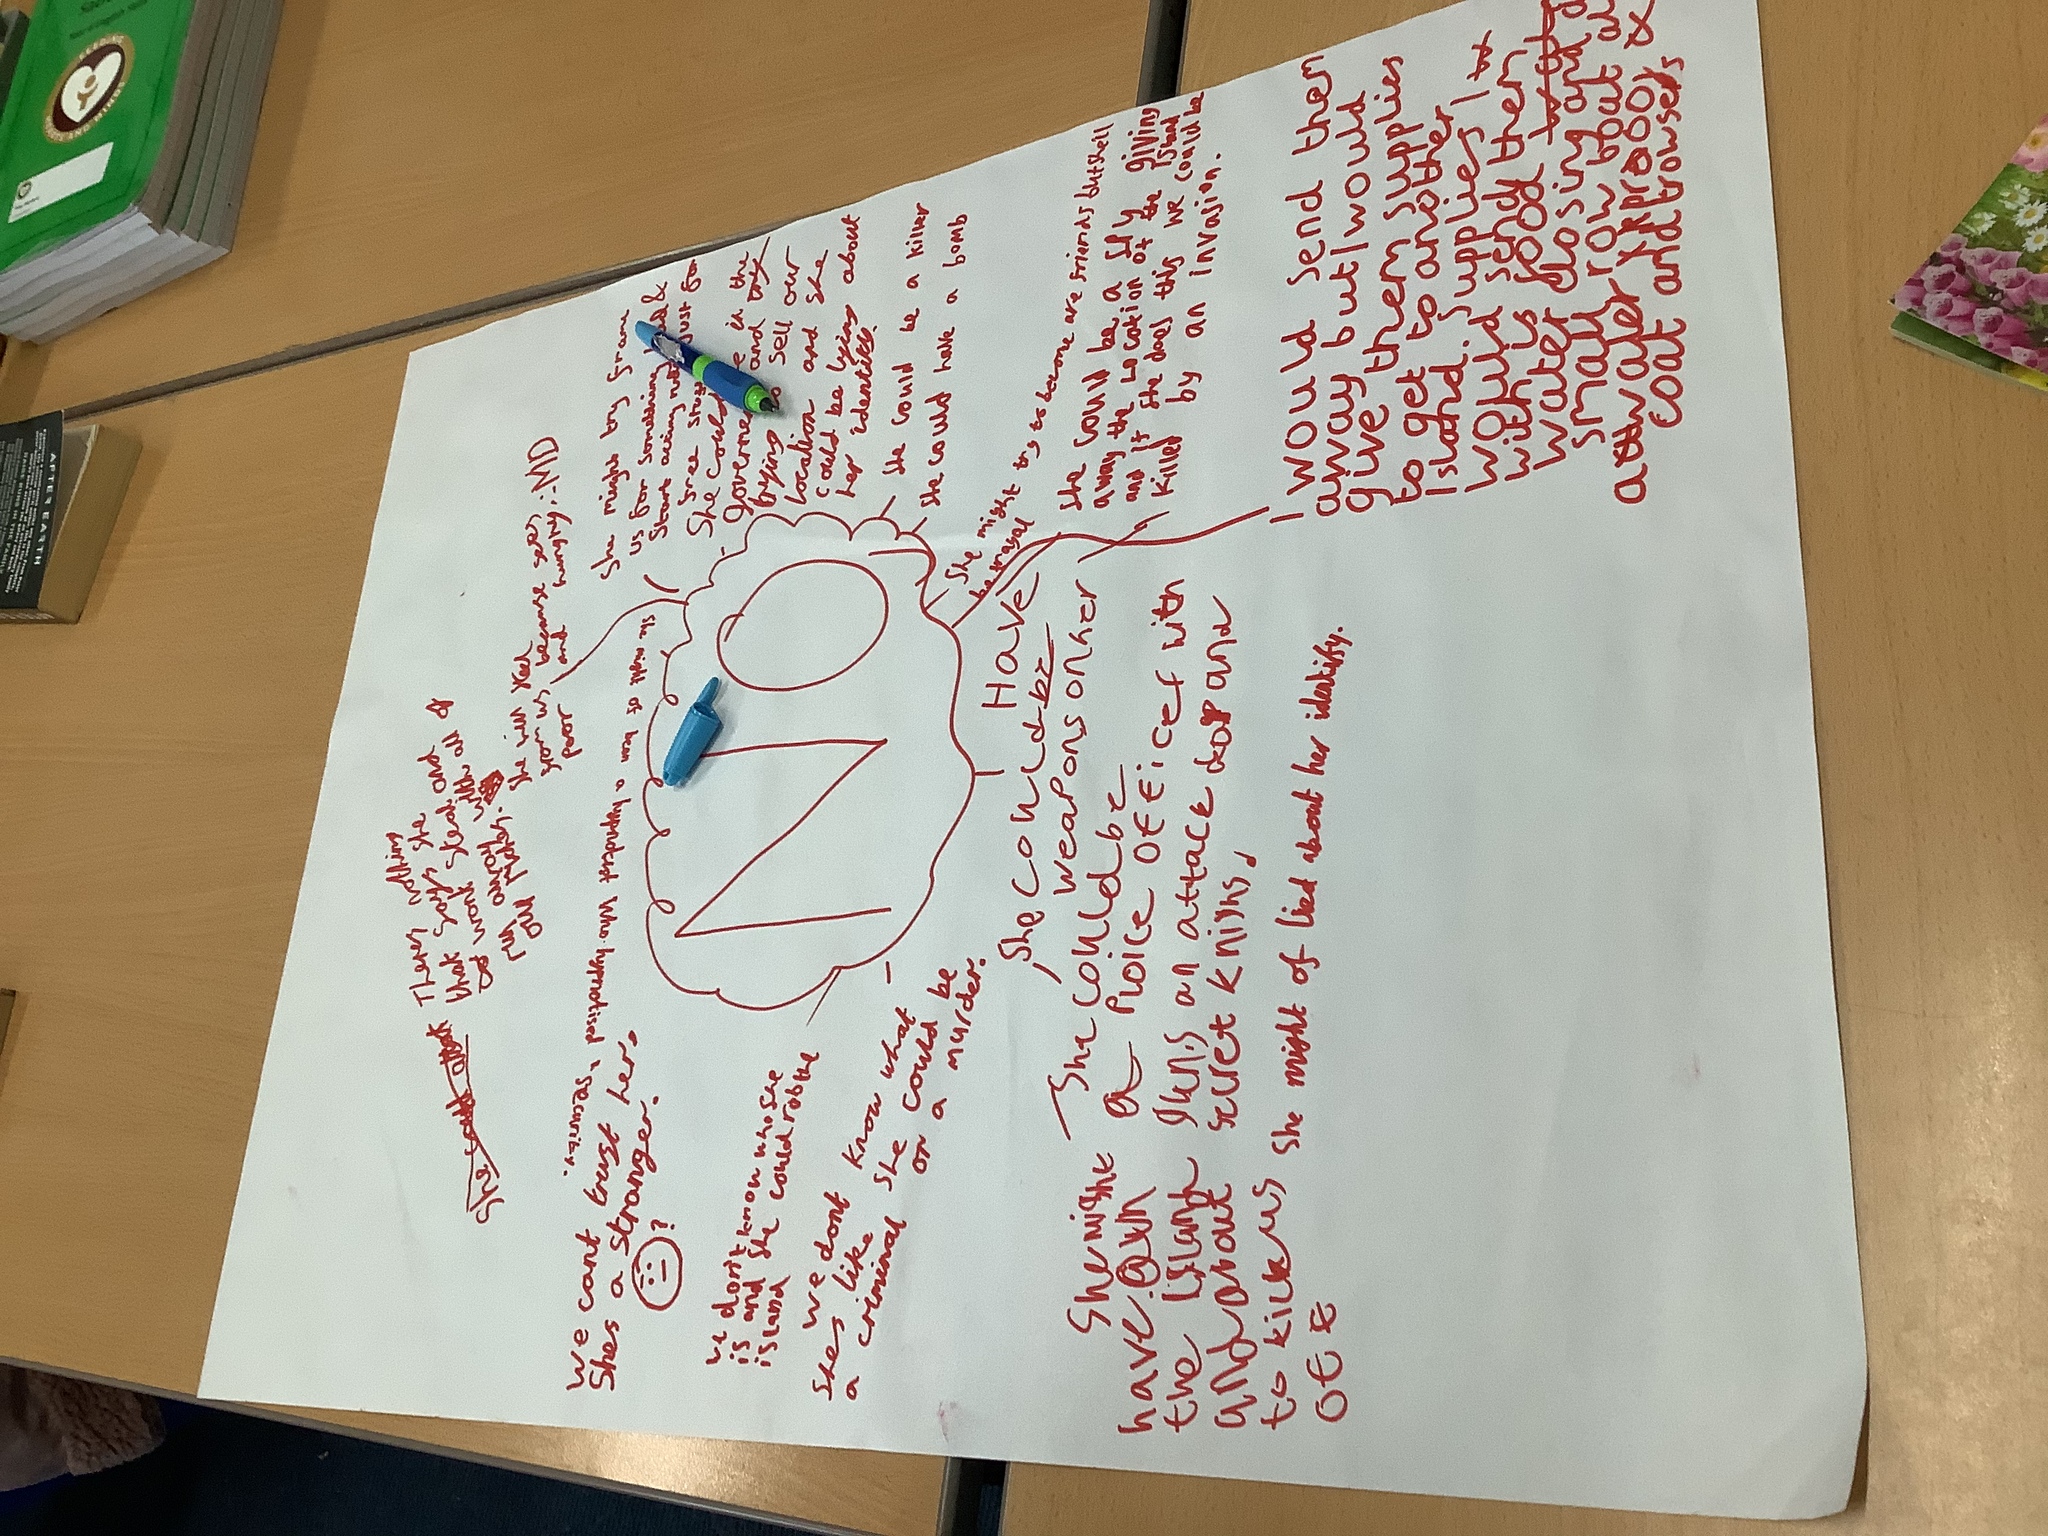 NO
She might try be framed
us for something and
start acting
free stuff just for
She could
government and in the
trying to sell our
location and she
could be lying about
her identity.
She could be a killer
She could have a bomb
She might try to become are friends but shell
be trayal
She could be a spy giving
away the location of the island
and if she does this we could be
killed by an invasion.
I would send them
away but I would
give them supplies
to get to another
island. supplies I
would send them
with is food
water closing and a
small row boat
coat and trowsers
Have
She could be
weapons on her
She could be
a ploice officef with
guns an attack dog and
secret knishs.
She might of lied about her identity.
She might
have own
the island
and about
to kick us
off
we dont know what
shes like she could be
a criminal or a murder.
we don't know who she
is and she could rob the
island
we cant trust her.
Shes a stranger.
?
she might of been a hyptndtest who hyptnotised security.
Theres nothing
that says she
wont steal and
run away with all of
our riches.
She will feel
because sees
and hungry :MD
poor
AFTER EARTH